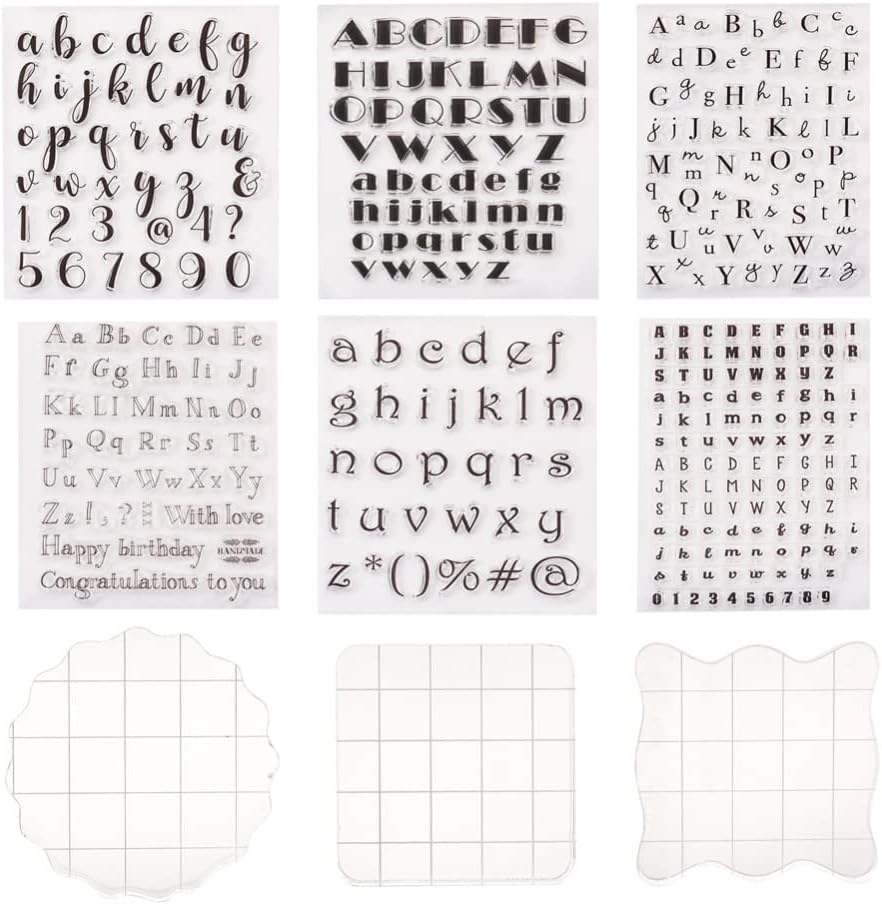 a b c d e f g
h i j k l m n
o p q r s t u
v w x y z &
1 2 3 @ 4 ?
5 6 7 8 9 0
A B C D E F G
H I J K L M N
O P Q R S T U
V W X Y Z
a b c d e f g
h i j k l m n
o p q r s t u
v w x y z
A a a B b b C c c
d d D e e E f f F
G g g H h h i I i
j j J k k K l l L
M m m N n n O o o P
q q Q r r R s s S p p t T
t U u u V v v W w w
X x x Y y y Z z z
A a B b C c D d E e
F f G g H h I i J j
K k L l M m N n O o
P p Q q R r S s T t
U u V v W w X x Y y
Z z ! , ? With love
Happy birthday HANDMADE
Congratulations to you
a b c d e f
g h i j k l m
n o p q r s
t u v w x y
z * ( ) % # @
A B C D E F G H I
J K L M N O P Q R
S T U V W X Y Z
a b c d e f g h i
j k l m n o p q r
s t u v w x y z
A B C D E F G H I
J K L M N O P Q R
S T U V W X Y Z
a b c d e f g h i
j k l m n o p q r
s t u v w x y z
0 1 2 3 4 5 6 7 8 9